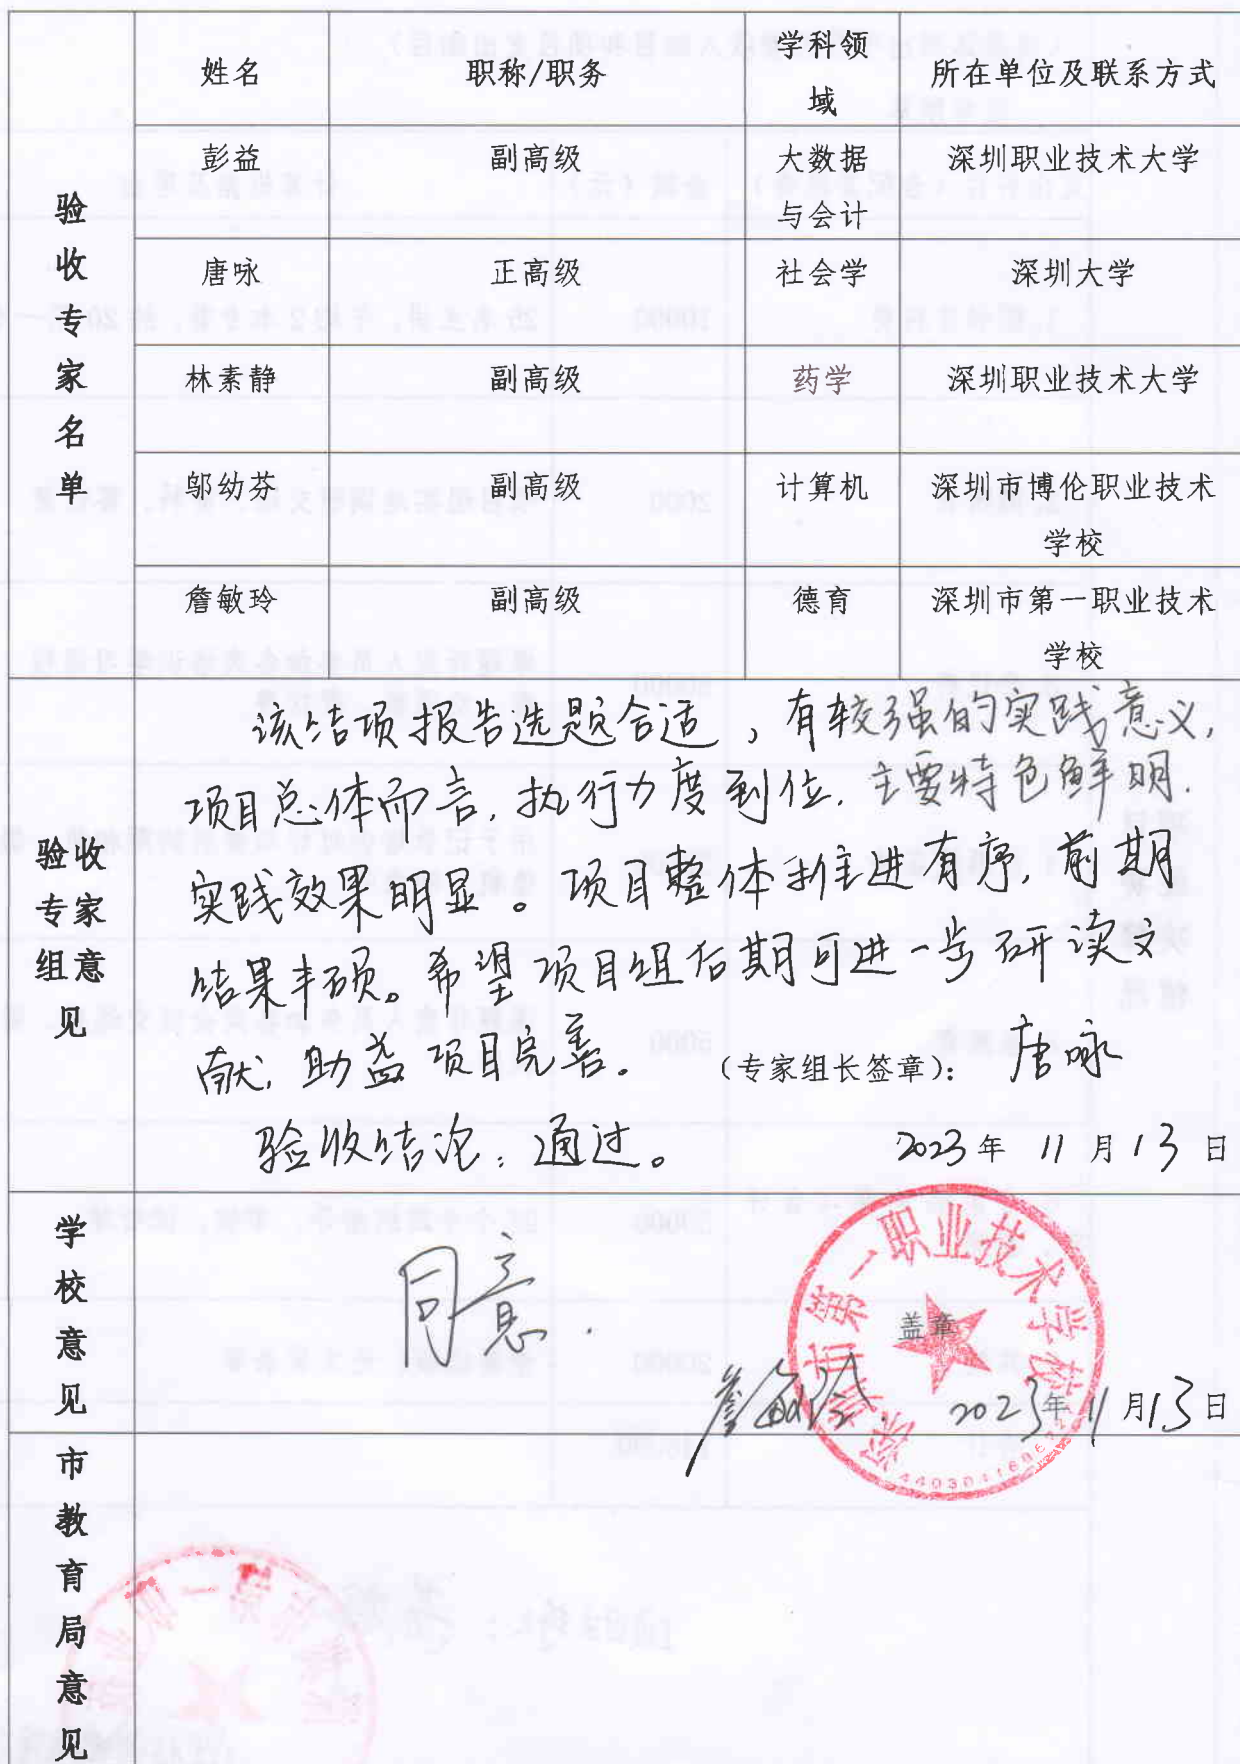 姓名 职称/职务 学科领域 所在单位及联系方式
验收专家名单
彭益 副高级 大数据与会计 深圳职业技术大学
唐咏 正高级 社会学 深圳大学
林素静 副高级 药学 深圳职业技术大学
邬幼芬 副高级 计算机 深圳市博伦职业技术学校
詹敏玲 副高级 德育 深圳市第一职业技术学校
验收专家组意见
该结项报告选题合适，有较强的实践意义，
项目总体而言，执行力度到位，主要特色鲜明，
实践效果明显。项目整体推进有序，前期
结果丰硕。希望项目组后期可进一步研读文
献，助益项目完善。 （专家组长签章）： 唐咏
验收结论：通过。 2023年 11月13日
学校意见
同意.
深圳市第一职业技术学校
盖章
詹敏玲 2023年11月13日
市教育局意见